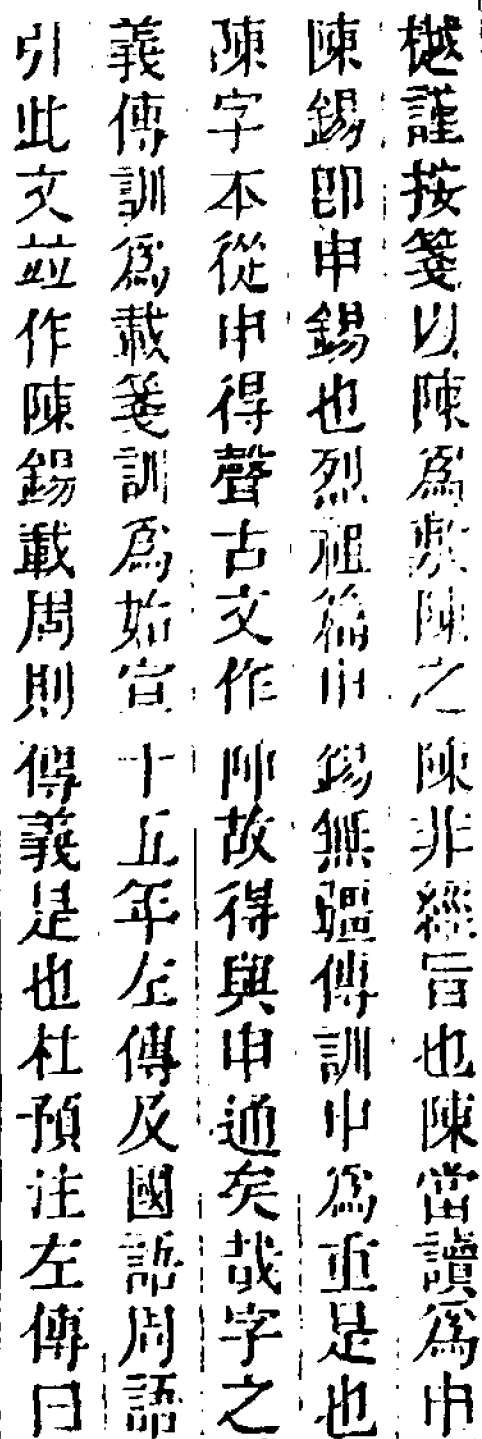 樾謹按箋以陳爲敷陳之陳非經旨也陳當讀爲申
陳錫卽申錫也烈祖篇申錫無疆傳訓申爲重是也
陳字本從申得聲古文作陣故得與申通矣哉字之
義傳訓爲載箋訓爲始宣十五年左傳及國語周語
引此文並作陳錫載周則傳義是也杜預注左傳曰